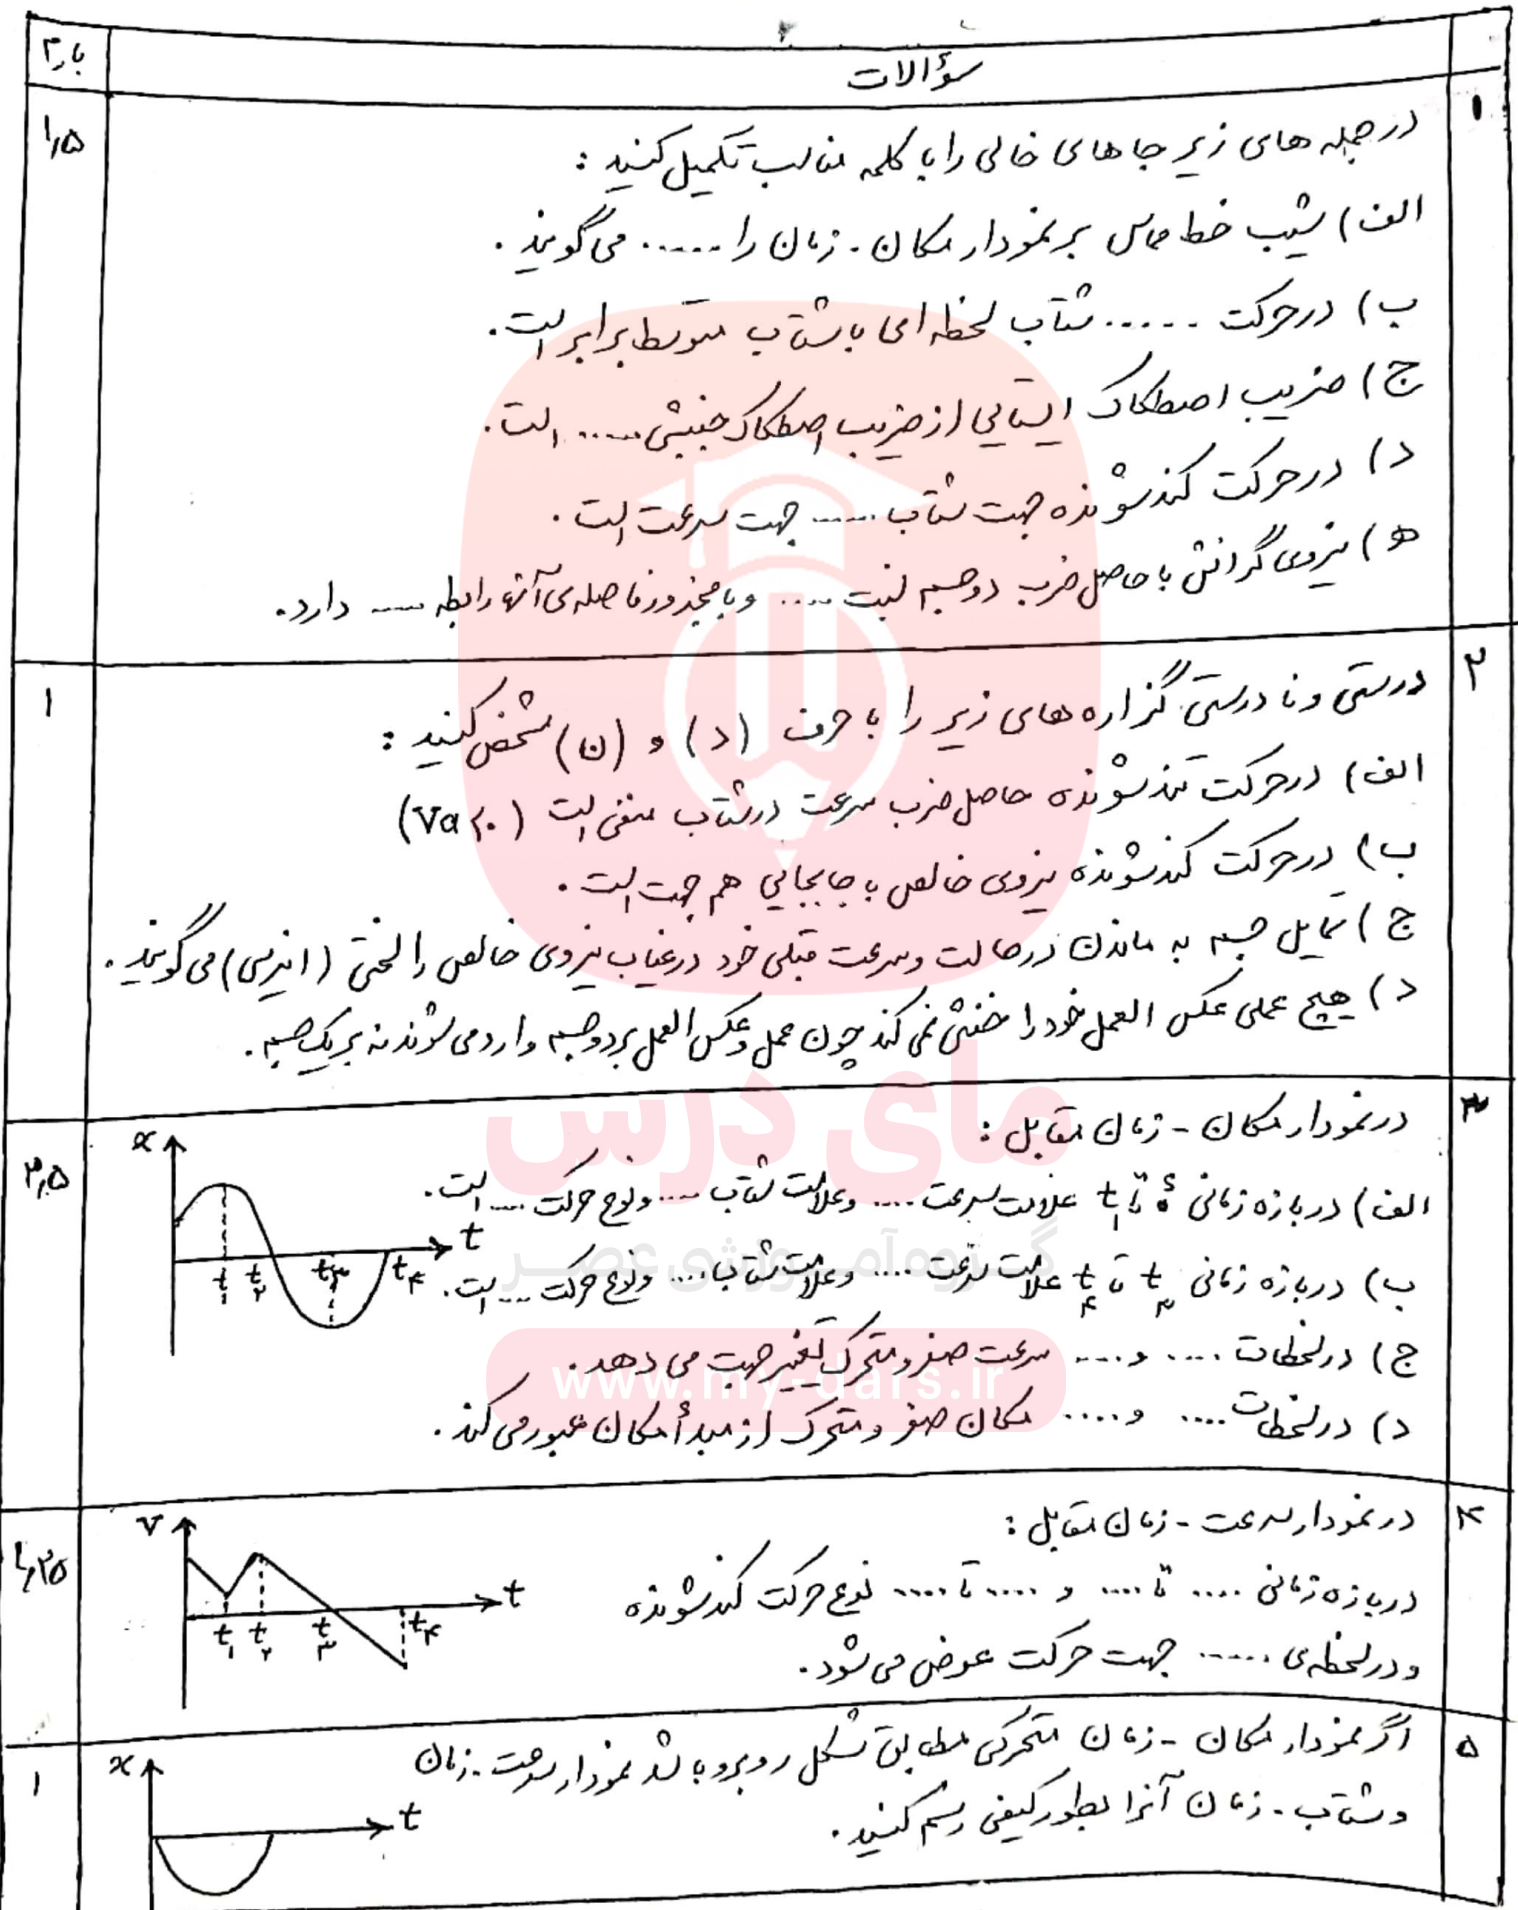 سؤالات
بارم
۱
۱٫۵
در جمله های زیر جا های خالی را با کلمه مناسب تکمیل کنید :
الف) شیب خط مماس بر نمودار مکان - زمان را ...... می گویند .
ب) در حرکت ...... شتاب لحظه ای با شتاب متوسط برابر است.
ج) ضریب اصطکاک ایستایی از ضریب اصطکاک جنبشی ...... است.
د) در حرکت کند شونده جهت شتاب ...... جهت سرعت است .
ه) نیروی گرانش با حاصل ضرب دو جسم نسبت .... و با مجذور فاصله ی آنها رابطه .... دارد.
۲
۱
درستی و نا درستی گزاره های زیر را با حرف (د) و (ن) مشخص کنید :
الف) در حرکت تند شونده حاصل ضرب سرعت در شتاب منفی است (va<۰)
ب) در حرکت کند شونده نیروی خالص با جابجایی هم جهت است .
ج) تمایل جسم به ماندن در حالت و سرعت قبلی خود در غیاب نیروی خالص را لختی (اینرسی) می گویند .
د) هیچ عملی عکس العمل خود را خنثی نمی کند چون عمل و عکس العمل بر دو جسم وارد می شوند نه بر یک جسم .
مای درس
گروه آموزشی عصر
www.my-dars.ir
۳
۲٫۵
در نمودار مکان - زمان مقابل :
الف) در بازه زمانی ۰ تا t۱ علامت سرعت .... و علامت شتاب .... و نوع حرکت .... است.
ب) در بازه زمانی t۳ تا t۴ علامت سرعت .... و علامت شتاب .... و نوع حرکت .... است.
ج) در لحظات .... و .... سرعت صفر و متحرک تغییر جهت می دهد .
د) در لحظات .... و .... مکان صفر و متحرک از مبدأ مکان عبور می کند .
x
t
t۱ t۲ t۳ t۴
۴
۱٫۲۵
در نمودار سرعت - زمان مقابل :
در بازه زمانی .... تا .... و .... تا .... نوع حرکت کند شونده
و در لحظه ی ...... جهت حرکت عوض می شود.
v
t
t۱ t۲ t۳ t۴
۵
۱
اگر نمودار مکان - زمان متحرکی مطابق شکل روبرو باشد نمودار سرعت - زمان
و شتاب - زمان آنرا بطور کیفی رسم کنید .
x
t